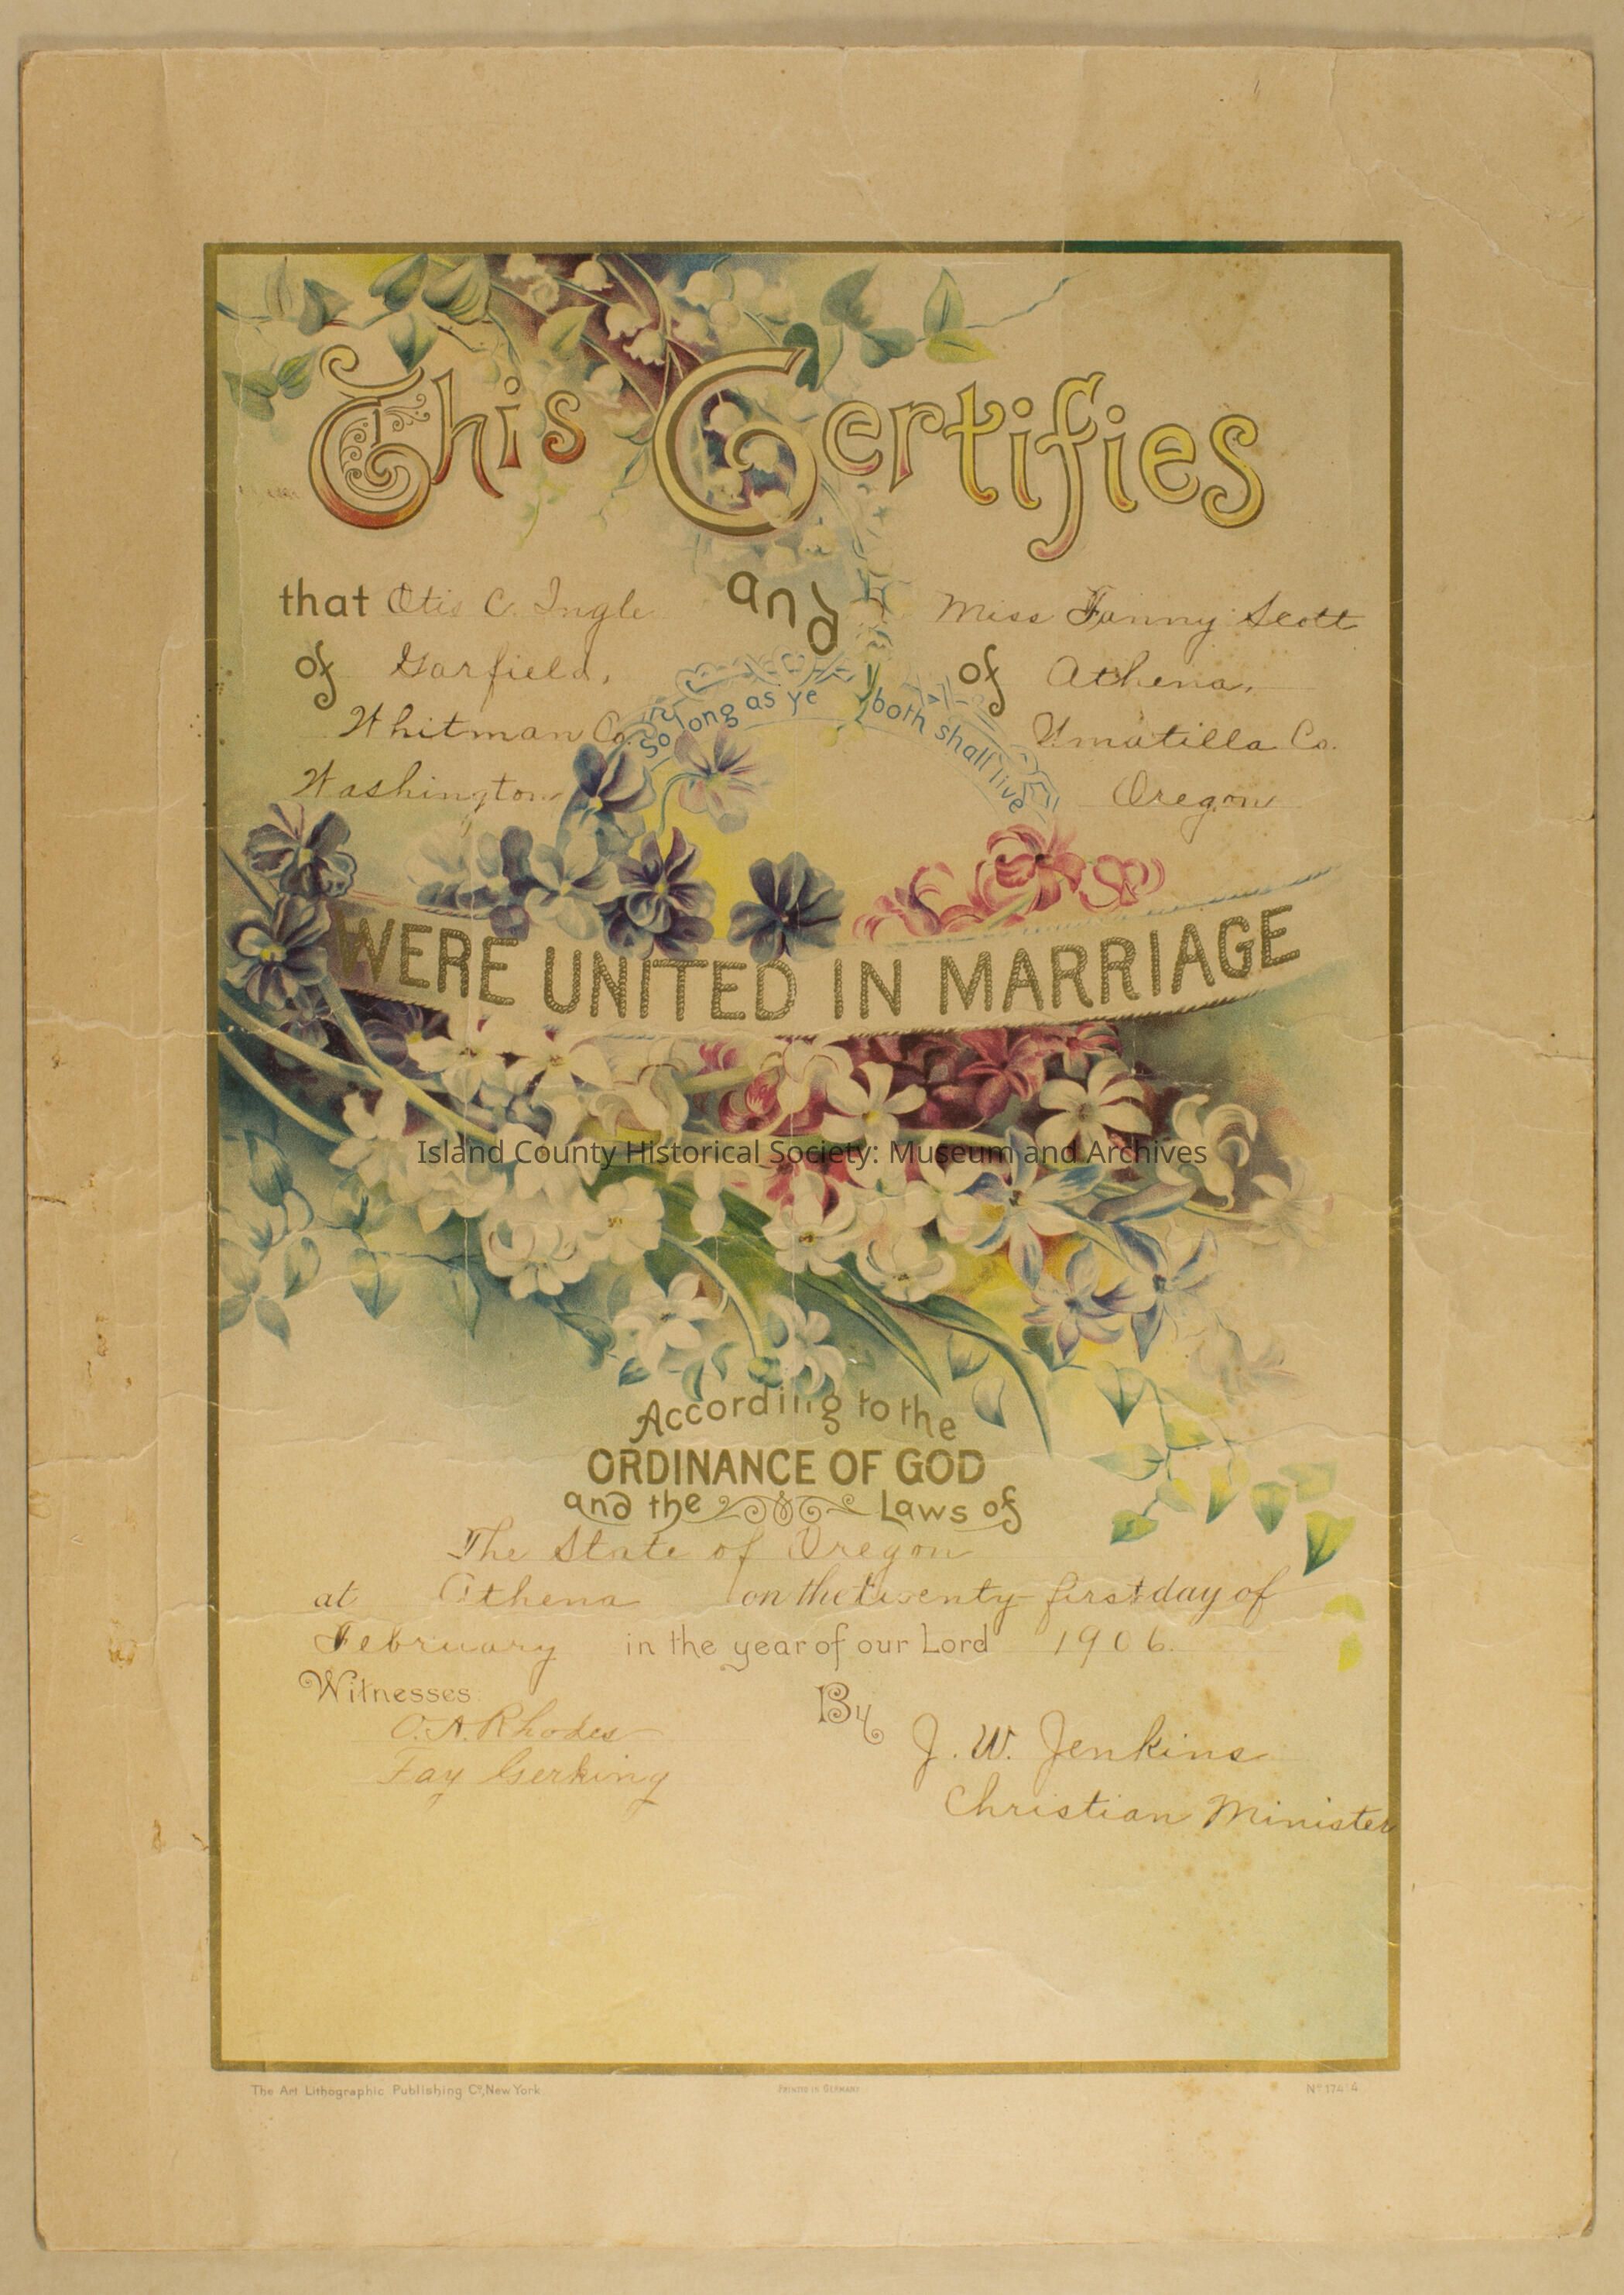 This Certifies
that Otis C. Ingle and Miss Fanny Scott
of Garfield, of Athena,
Whitman Co. Umatilla Co.
Washington Oregon
so long as ye both shall live
WERE UNITED IN MARRIAGE
Island County Historical Society: Museum and Archives
According to the
ORDINANCE OF GOD
and the Laws of
The State of Oregon
at Athena on the twenty-first day of
February in the year of our Lord 1906.
Witnesses
By
O. A. Rhodes
J. W. Jenkins
Fay Gerking
Christian Minister
The Art Lithographic Publishing Co, New York
PRINTED IN GERMANY